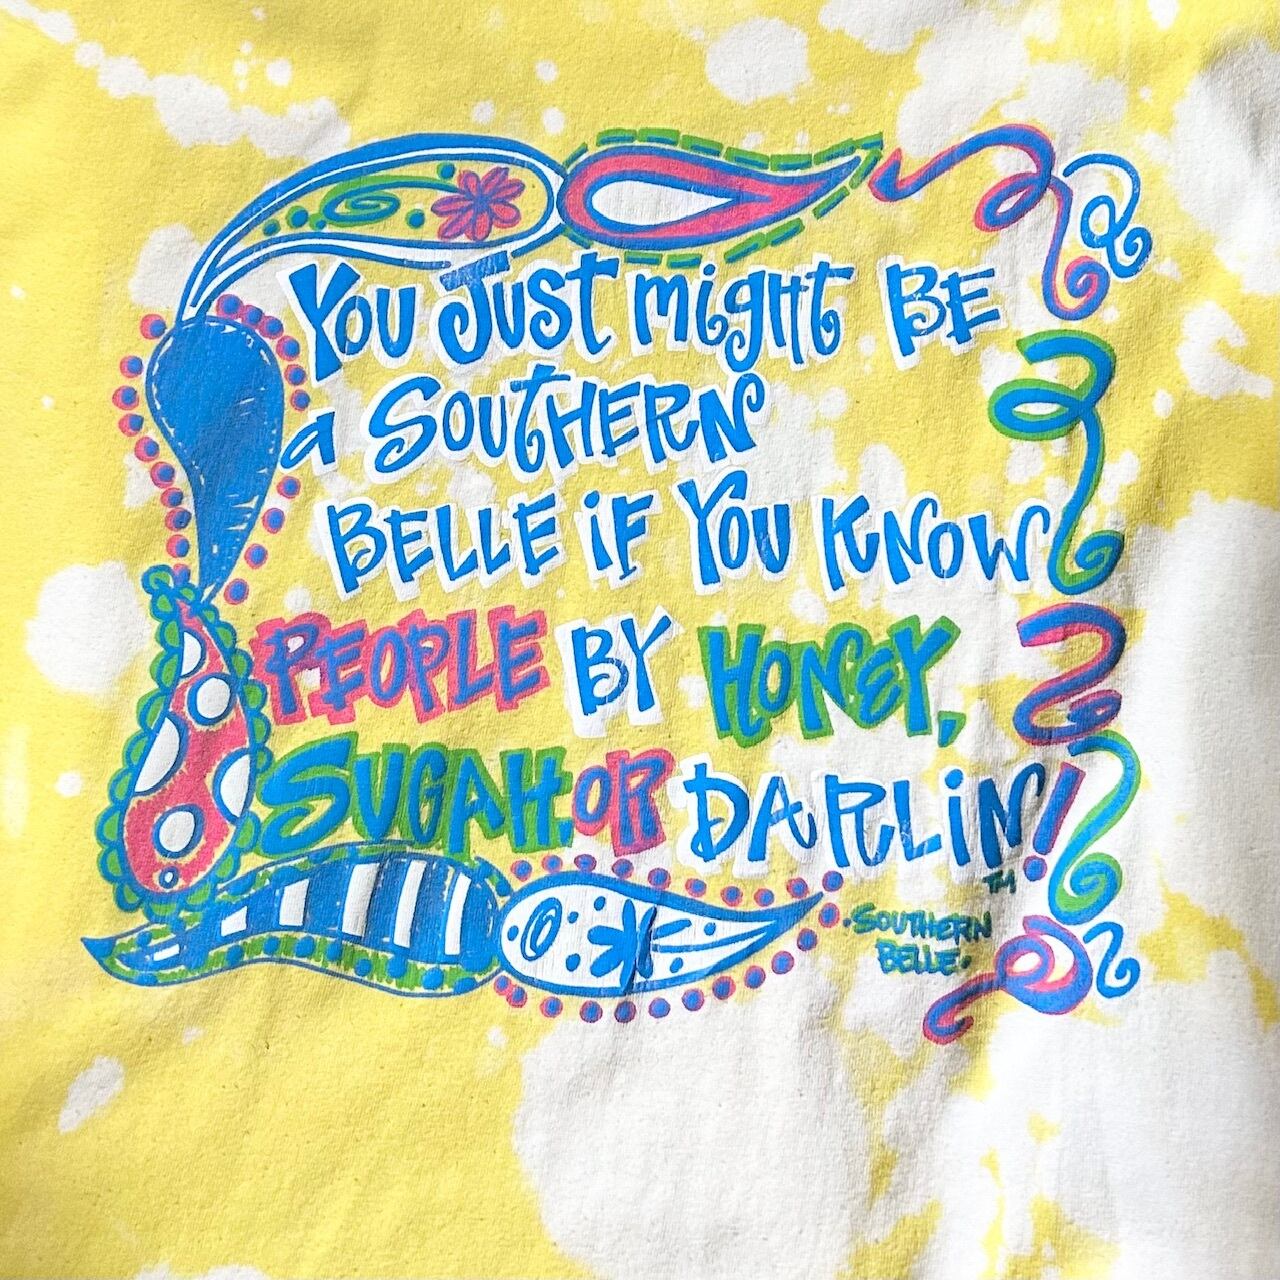 You Just might BE
a SOUTHERN
BELLE iF You KNOW
PEOPLE BY HONEY,
SUGAH, OR DARLiN'!
TM
·SOUTHERN
BELLE·